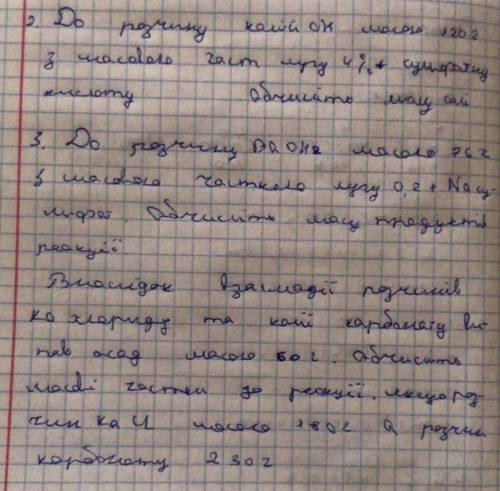 2. До розчину калій ОН масою 120 г
з масовою част лугу 4% + сульфатну
кислоту Обчисліть масу солі
3. До розчину OH2 масою 76 г
з масовою часткою лугу 0,2 + Na сул-
фат. Обчисліть масу продуктів
реакції.
Внаслідок взаємодії розчинів
ка хлориду та калій карбонату ви-
пав осад масою 60 г. Обчисліть
масові частки до реакції, якщо роз-
чин ка масою 180 г а розчин
карбонату 230 г